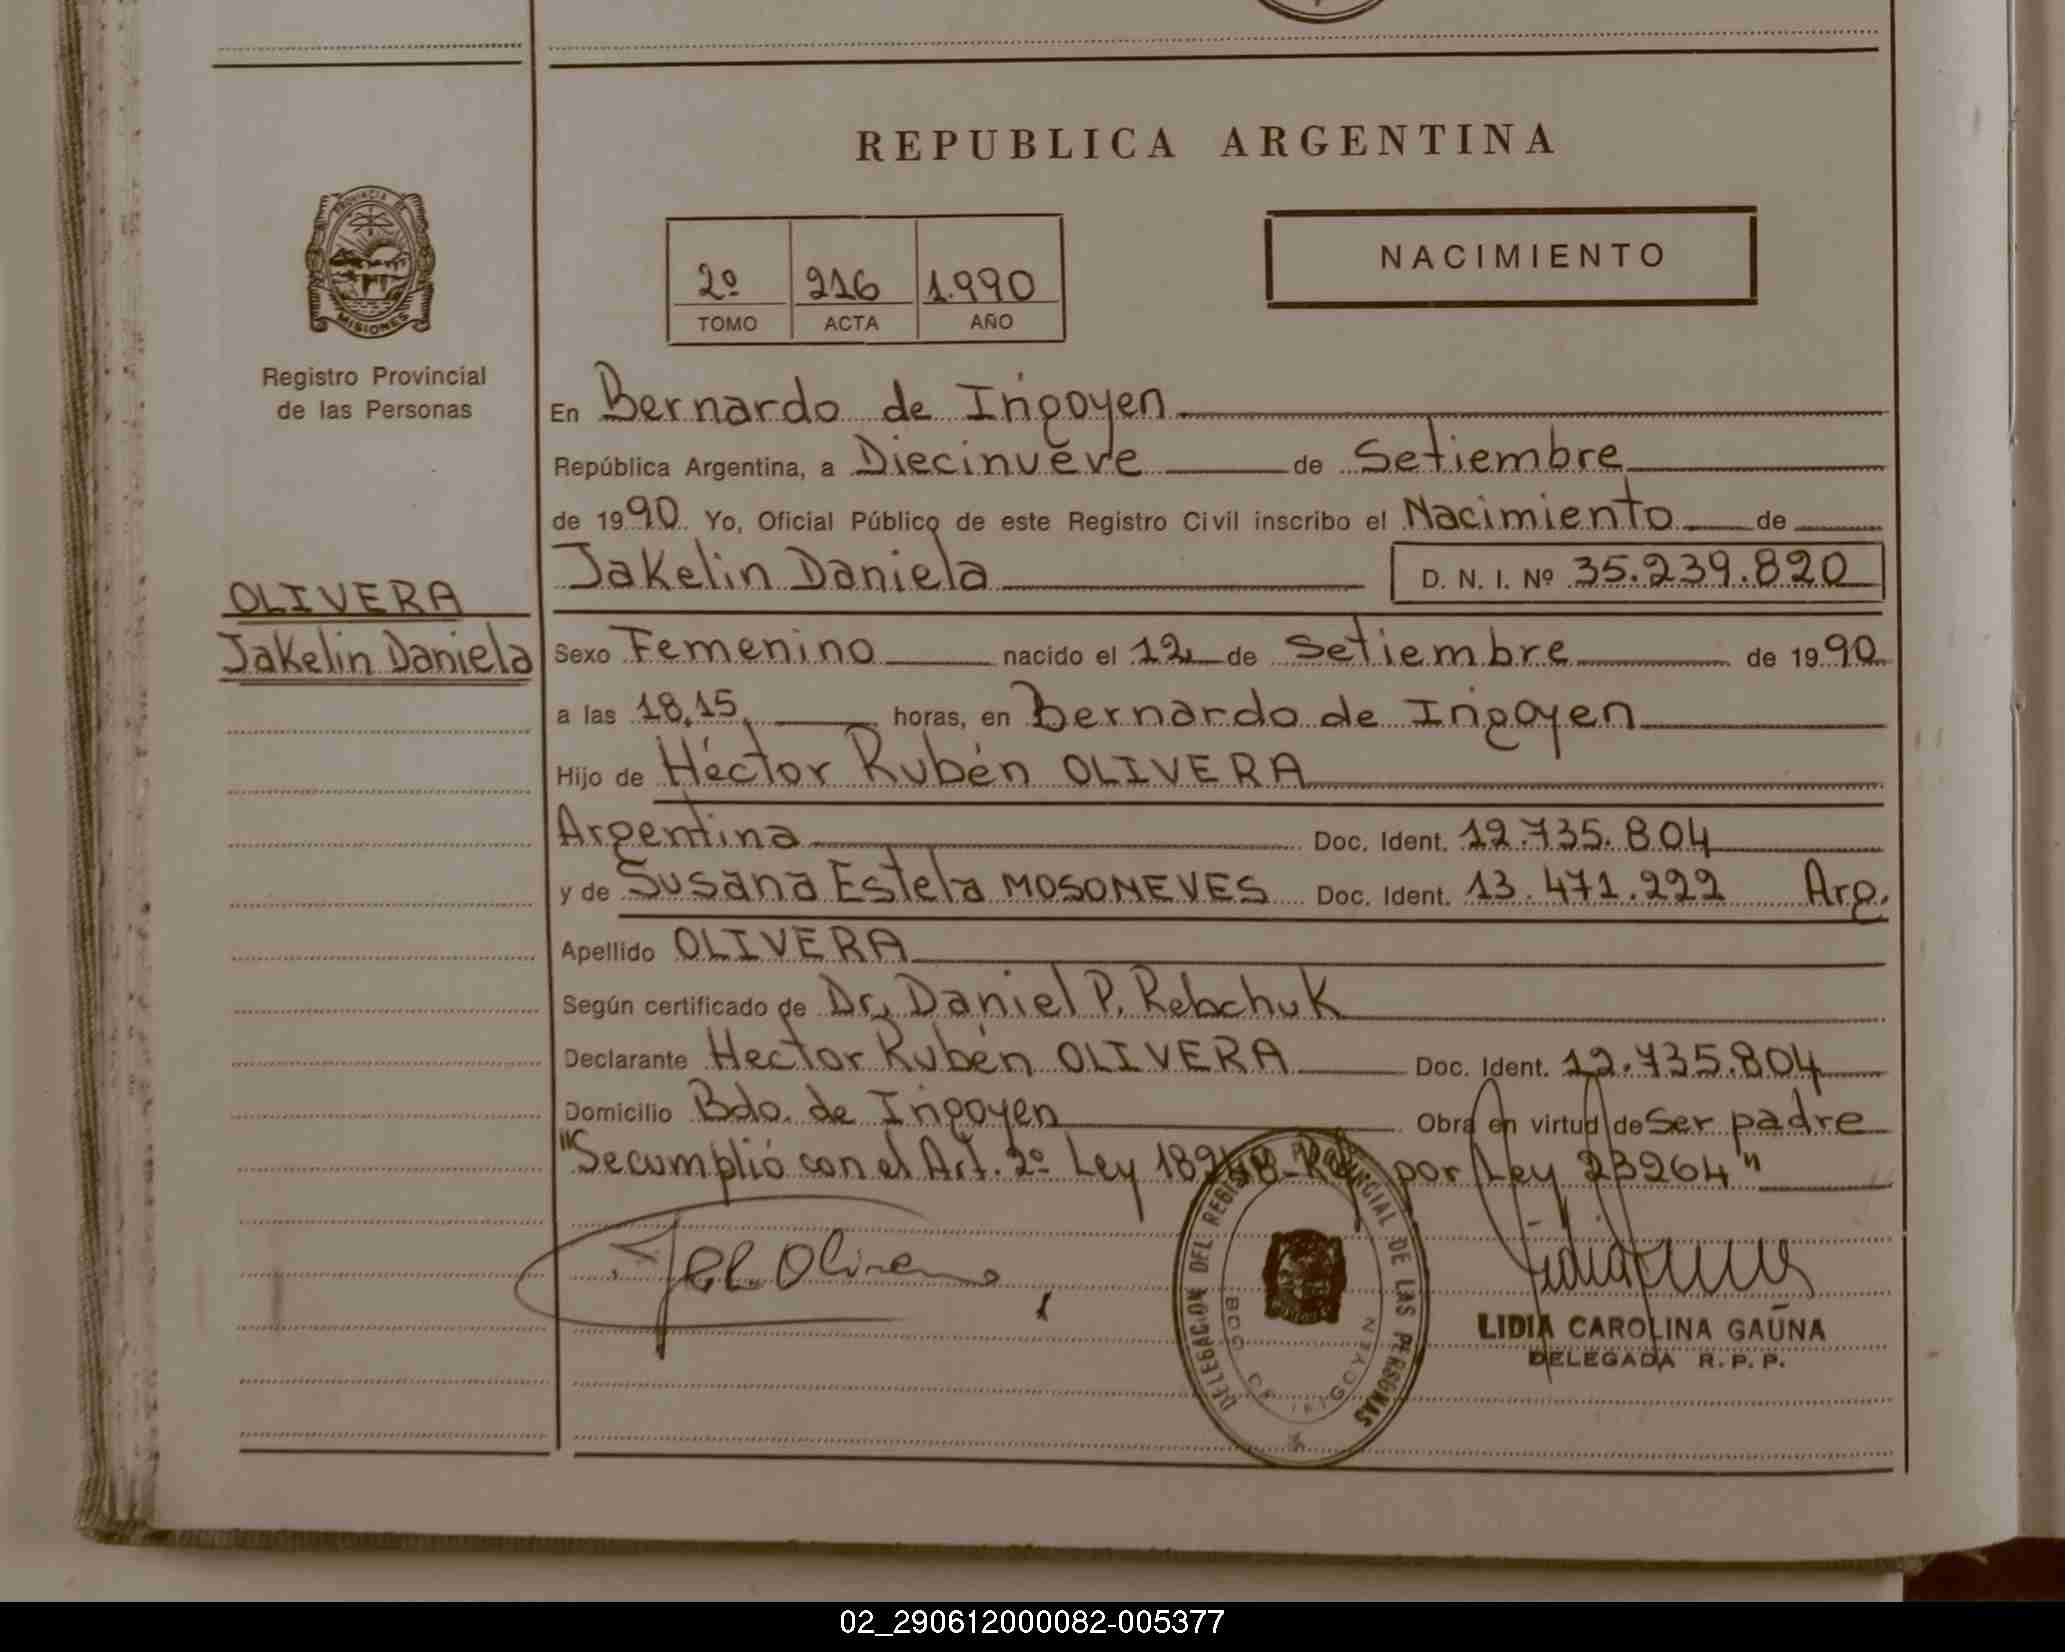 REPUBLICA ARGENTINA
PROVINCIA DE MISIONES
2º 216 1.990
TOMO ACTA AÑO
NACIMIENTO
Registro Provincial
de las Personas
En Bernardo de Irigoyen
República Argentina, a Diecinueve de Setiembre
de 1990 Yo, Oficial Público de este Registro Civil inscribo el Nacimiento de
Jakelin Daniela D. N. I. Nº 35.239.820
OLIVERA
Jakelin Daniela
Sexo Femenino nacido el 12 de Setiembre de 1990
a las 18,15 horas, en Bernardo de Irigoyen
Hijo de Héctor Rubén OLIVERA
Argentina Doc. Ident. 12.735.804
y de Susana Estela MOSONEVES Doc. Ident. 13.471.222 Arg.
Apellido OLIVERA
Según certificado de Dr. Daniel P. Rebchuk
Declarante Hector Rubén OLIVERA Doc. Ident. 12.735.804
Domicilio Bdo. de Irigoyen Obra en virtud de Ser padre
"Se cumplió con el Art. 2º Ley 18248 por Ley 23264"
DELEGACION DEL REGISTRO PROVINCIAL DE LAS PERSONAS
BDO DE IRIGOYEN
LIDIA CAROLINA GAUNA
DELEGADA R.P.P.
02_290612000082-005377